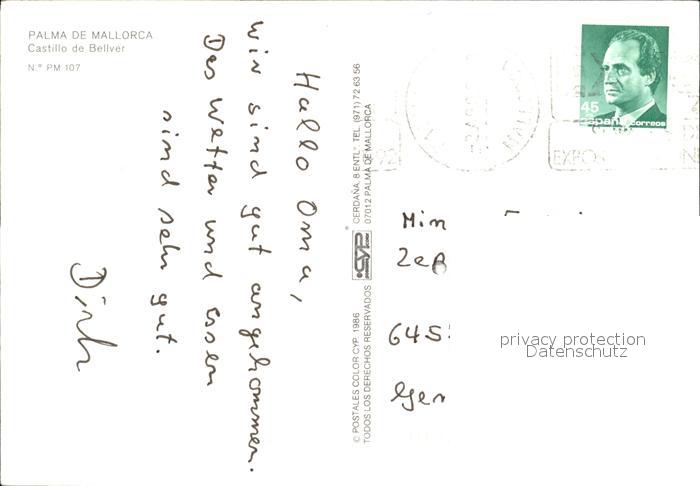 PALMA DE MALLORCA
Castillo de Bellver
N.° PM 107
Hallo Oma,
wir sind gut angekommen.
Das Wetter und Essen
sind sehr gut.
Dirk
© POSTALES COLOR CYP, 1986
TODOS LOS DERECHOS RESERVADOS
CYP
CERDAÑA, 8 ENTL.° TEL. (971) 72 63 56
07012 PALMA DE MALLORCA
45
españa correos
EXPO
Min
645
Ger
privacy protection
Datenschutz